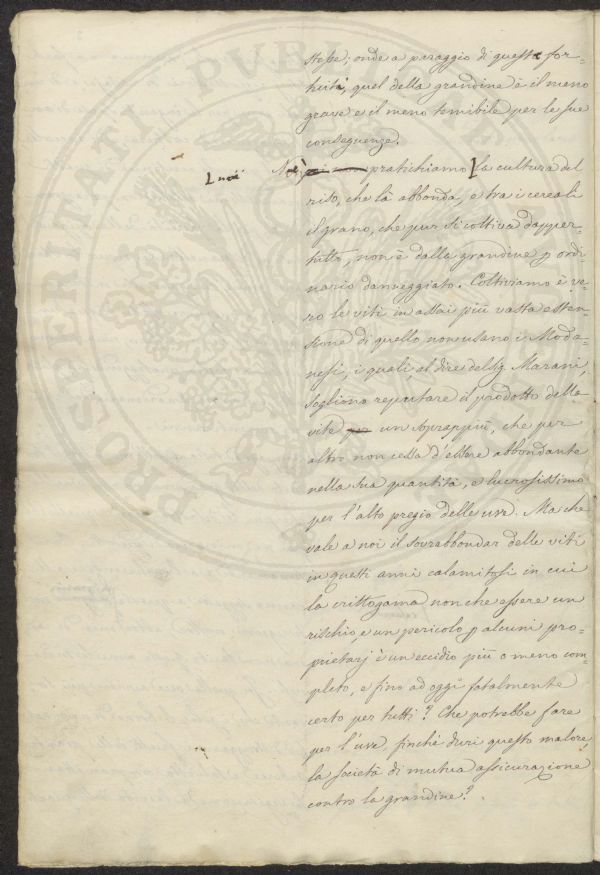 stesse; onde a paraggio di questa for-
tuita, quel della grandine è il meno
grave e il meno temibile per le sue
conseguenze.
Noi pratichiamo la cultura del
riso, che là abbonda, e tra i cereali
il grano, che pur si coltiva dapper-
tutto, non è dalla grandine p ordi
nario danneggiato. Coltiviamo è ve-
ro le viti in assai più vasta esten-
sione di quello non usano i Moda-
nesi, i quali, al dire del Sig. Marani,
sogliono reputare il prodotto della
vite un soprappiù, che per
altro non cessa d'essere abbondante
nella sua quantità, e lucrosissimo
per l'alto pregio delle uve. Ma che
vale a noi il sovrabbondar delle viti
in questi anni calamitosi in cui
la crittogama non che essere un
rischio, e un pericolo p alcuni pro-
prietarj è un eccidio più o meno com-
pleto, e fino ad oggi fatalmente
certo per tutti? Che potrebbe fare
per l'uve, finchè duri questo malore,
la società di mutua assicurazione
contro la grandine?
PROSPERITATI PVBLICAE